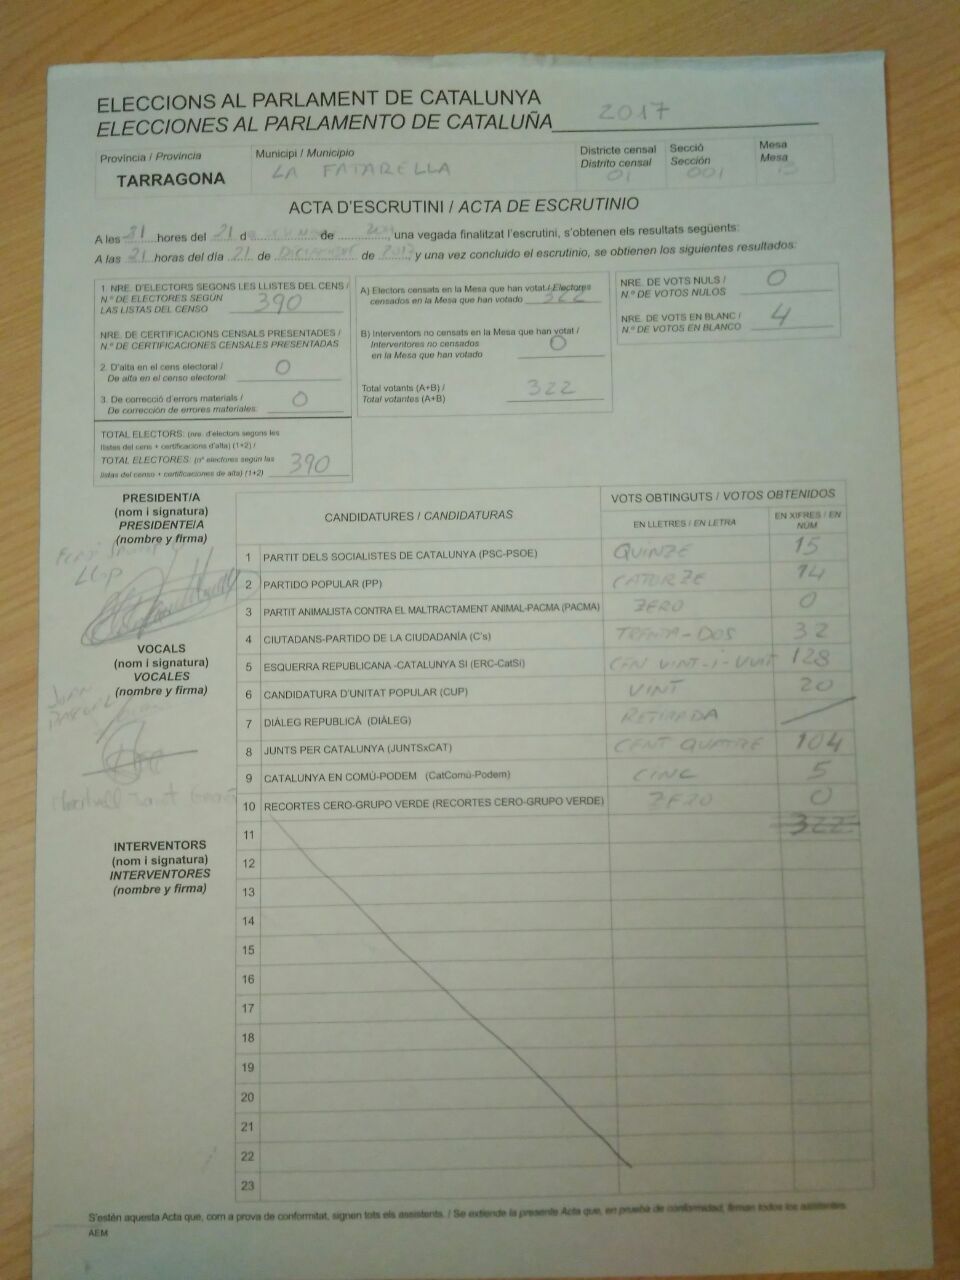 ELECCIONS AL PARLAMENT DE CATALUNYA
ELECCIONES AL PARLAMENTO DE CATALUÑA 2017
Provincia / Provincia
TARRAGONA
Municipi / Municipio
LA FATARELLA
Districte censal
Distrito censal
01
Secció
Sección
001
Mesa
Mesa
ACTA D'ESCRUTINI / ACTA DE ESCRUTINIO
A les 21 hores del 21 d de , una vegada finalitzat l'escrutini, s'obtenen els resultats següents:
A las 21 horas del día 21 de DICIEMBRE de 2017, y una vez concluido el escrutinio, se obtienen los siguientes resultados:
1. NRE. D'ELECTORS SEGONS LES LLISTES DEL CENS /
N.º DE ELECTORES SEGÚN
LAS LISTAS DEL CENSO 390
NRE. DE CERTIFICACIONS CENSALS PRESENTADES /
N.º DE CERTIFICACIONES CENSALES PRESENTADAS
2. D'alta en el cens electoral /
De alta en el censo electoral: 0
3. De correcció d'errors materials /
De corrección de errores materiales: 0
TOTAL ELECTORS: (nre. d'electors segons les
llistes del cens + certificacions d'alta) (1+2) /
TOTAL ELECTORES: (nº electores según las
listas del censo + certificaciones de alta) (1+2) 390
A) Electors censats en la Mesa que han votat / Electores
censados en la Mesa que han votado 322
B) Interventors no censats en la Mesa que han votat /
Interventores no censados
en la Mesa que han votado 0
Total votants (A+B) /
Total votantes (A+B) 322
NRE. DE VOTS NULS /
N.º DE VOTOS NULOS 0
NRE. DE VOTS EN BLANC /
N.º DE VOTOS EN BLANCO 4
PRESIDENT/A
(nom i signatura)
PRESIDENTE/A
(nombre y firma)
VOCALS
(nom i signatura)
VOCALES
(nombre y firma)
INTERVENTORS
(nom i signatura)
INTERVENTORES
(nombre y firma)
CANDIDATURES / CANDIDATURAS
VOTS OBTINGUTS / VOTOS OBTENIDOS
EN LLETRES / EN LETRA
EN XIFRES / EN NÚM
1 PARTIT DELS SOCIALISTES DE CATALUNYA (PSC-PSOE) QUINZE 15
2 PARTIDO POPULAR (PP) CATORZE 14
3 PARTIT ANIMALISTA CONTRA EL MALTRACTAMENT ANIMAL-PACMA (PACMA) ZERO 0
4 CIUTADANS-PARTIDO DE LA CIUDADANÍA (C's) TRENTA-DOS 32
5 ESQUERRA REPUBLICANA -CATALUNYA SÍ (ERC-CatSí) CEN VINT-I-VUIT 128
6 CANDIDATURA D'UNITAT POPULAR (CUP) VINT 20
7 DIÀLEG REPUBLICÀ (DIÀLEG) RETIRADA
8 JUNTS PER CATALUNYA (JUNTSxCAT) CENT QUATRE 104
9 CATALUNYA EN COMÚ-PODEM (CatComú-Podem) CINC 5
10 RECORTES CERO-GRUPO VERDE (RECORTES CERO-GRUPO VERDE) ZERO 0
11 322
12
13
14
15
16
17
18
19
20
21
22
23
S'estén aquesta Acta que, com a prova de conformitat, signen tots els assistents. / Se extiende la presente Acta que, en prueba de conformidad, firman todos los asistentes
AEM